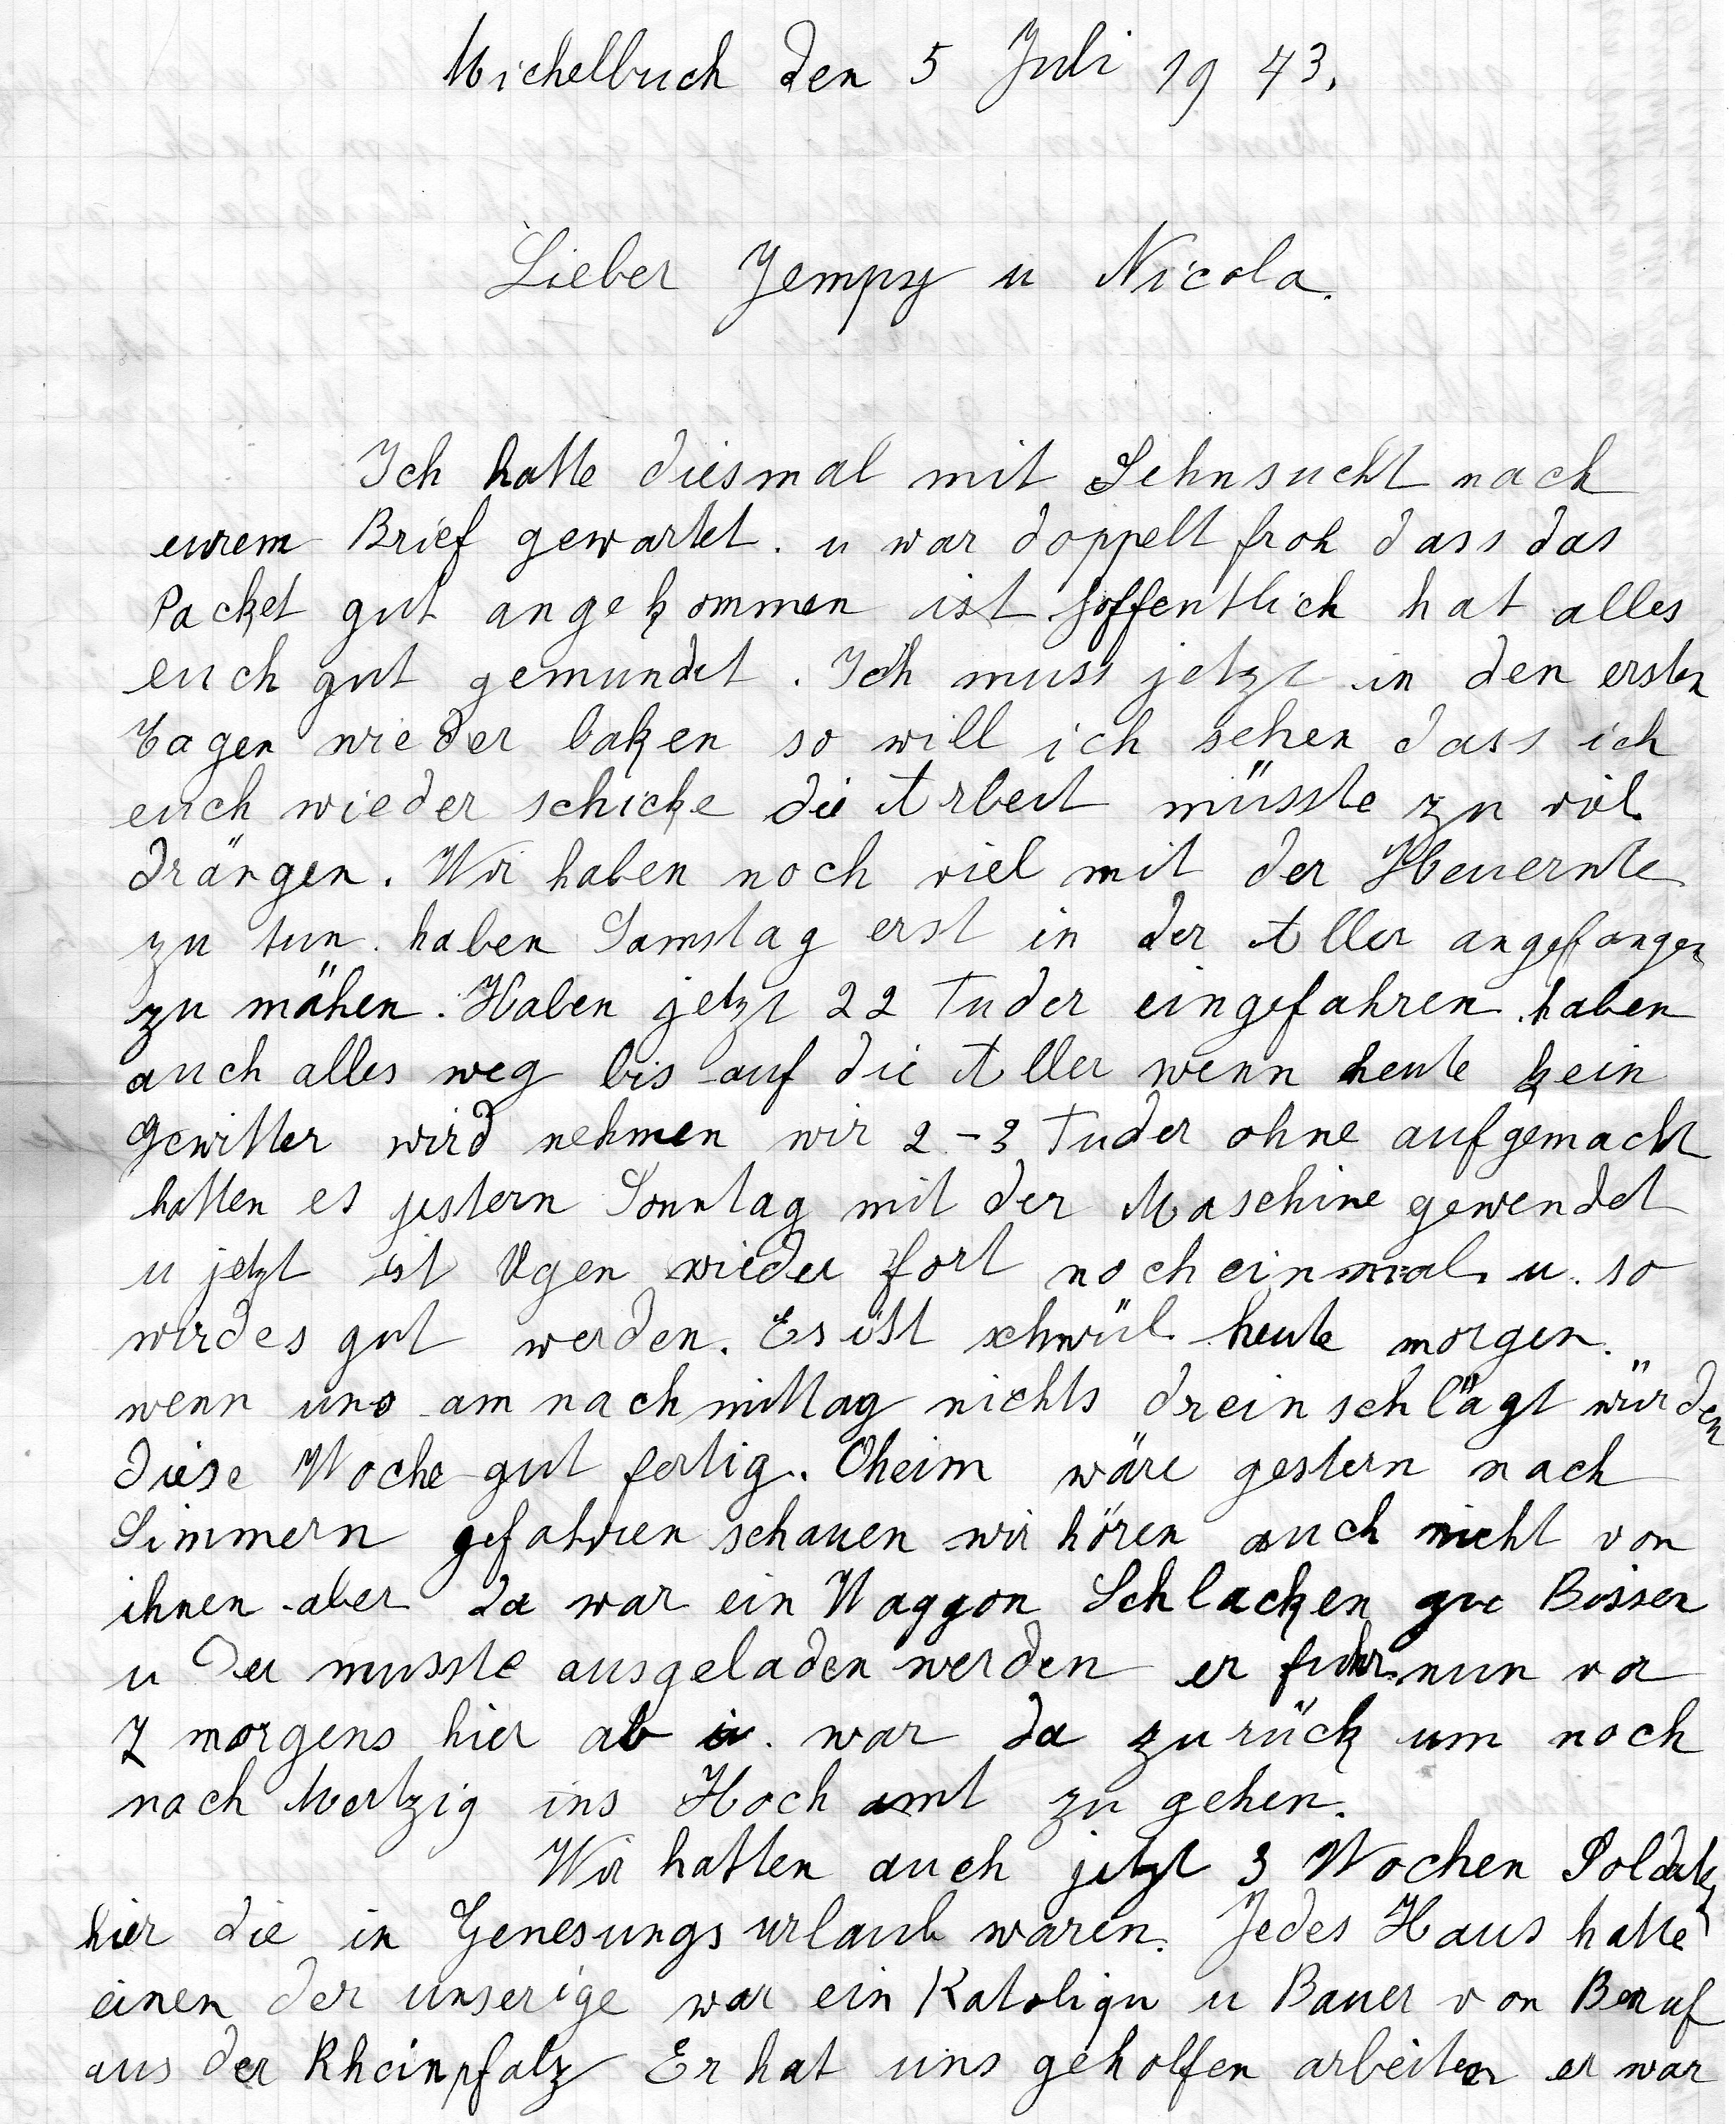 Michelbuch den 5 Juli 1943.
Lieber Jempy u Nicola.
Ich hatte diesmal mit Sehnsucht nach
eurem Brief gewartet. u war doppelt froh dass das
Packet gut angekommen ist hoffentlich hat alles
euch gut gemundet. Ich muss jetzt in den ersten
Tagen wieder baken so will ich sehen dass ich
euch wieder schicke die Arbeit müsste zu viel
drängen. Wir haben noch viel mit der Heuernte
zu tun. haben Samstag erst in der Aller angefangen
zu mähen. Haben jetzt 22 Fuder eingefahren haben
auch alles weg bis auf die Aller wenn heute kein
Gewitter wird nehmen wir 2-3 Fuder ohne aufgemacht
hatten es gestern Sonntag mit der Maschine gewendet
u jetzt ist Ugen wieder fort noch einmal u. so
wird es gut werden. Es ist schwül heute morgen.
wenn uns am nachmittag nichts drein schlägt würden
diese Woche gut fertig. Oheim wäre gestern nach
Simmern gefahren schauen wir hören auch nicht von
ihnen aber da war ein Waggon Schlacken Bissen
u der musste ausgeladen werden er fuhr nun vor
7 morgens hier ab u. war da zurück um noch
nach Mertzig ins Hoch amt zu gehen.
Wir hatten auch jetzt 3 Wochen Soldaten
hier die in Genesungsurlaub waren. Jedes Haus hatte
einen der unserige war ein Katoliqu u Bauer von Beruf
aus der Rheinpfalz Er hat uns geholfen arbeiten er war